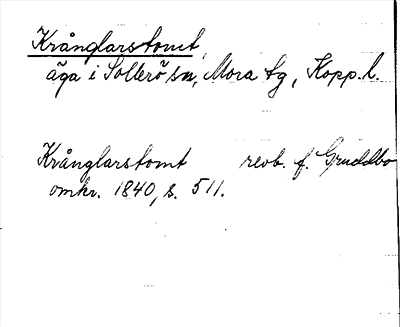 Krånglarstomt,
äga i Sollerö sn, Mora tg, Kopp. l.
Krånglarstomt revb. f. Gruddbo
omkr. 1840, s. 511.